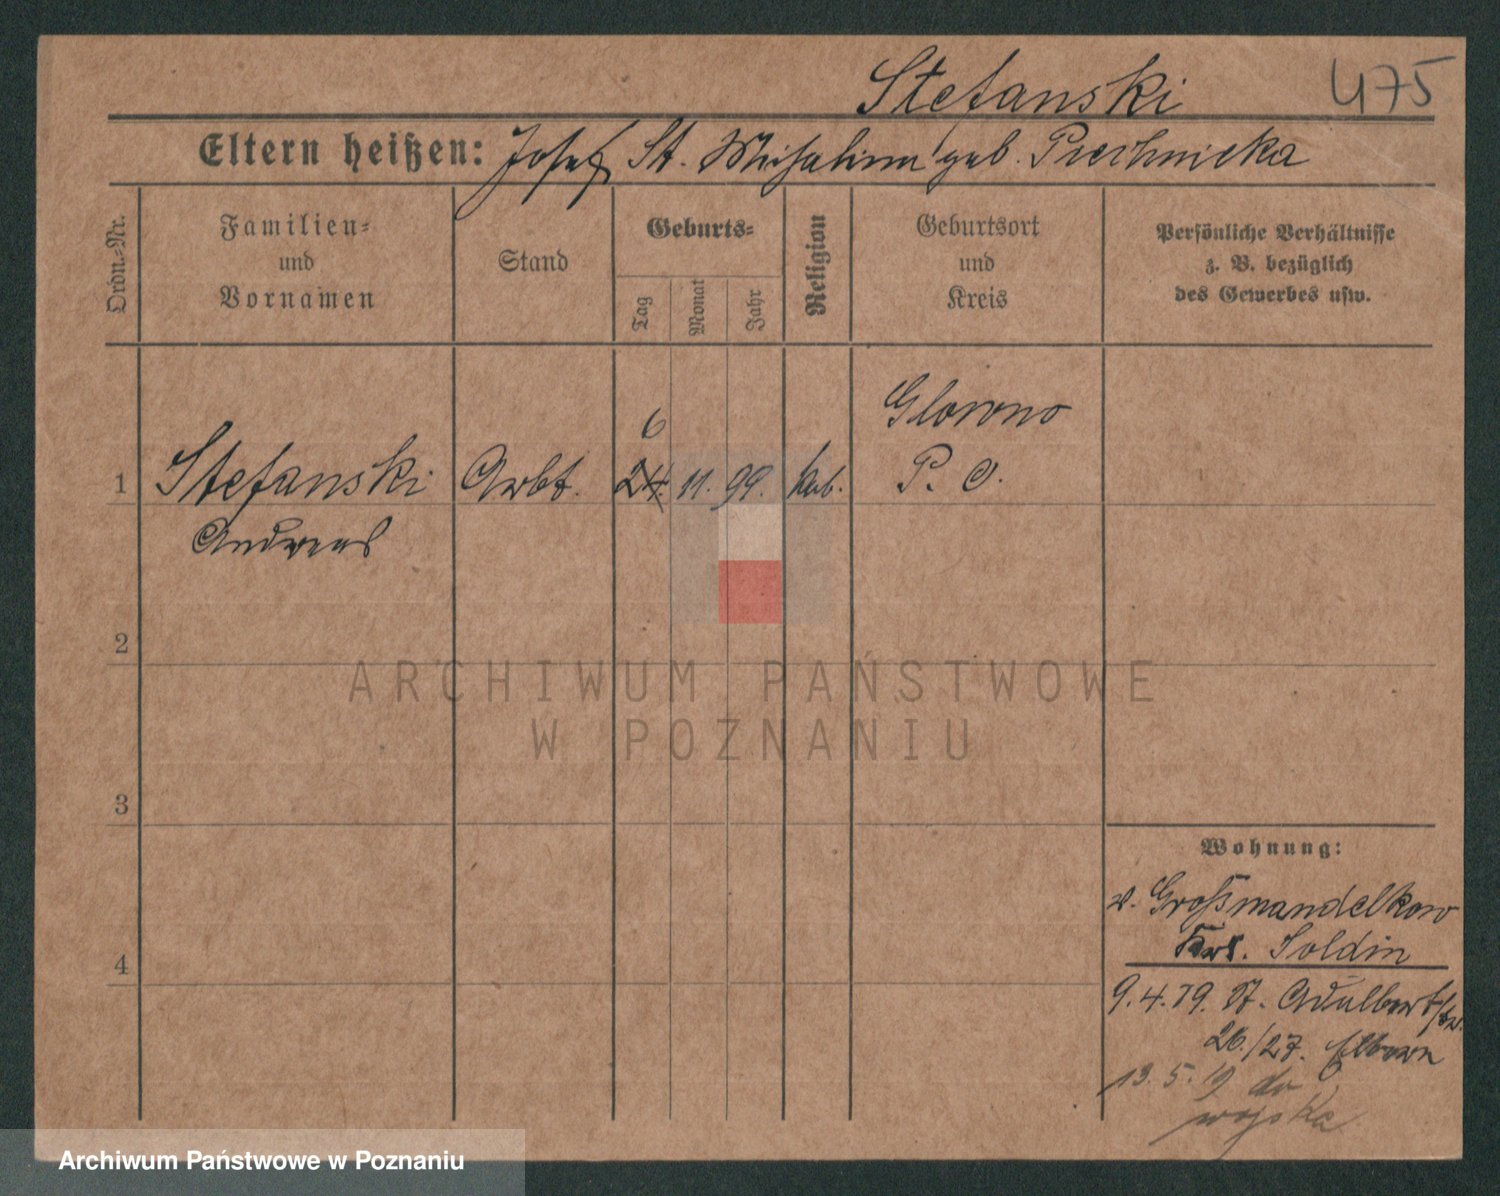 Stefanski
475
Eltern heißen: Josef St. Michalina geb. Piechnicka
Ordn.=Nr.
Familien=
und
Vornamen
Stand
Geburts=
Tag
Monat
Jahr
Religion
Geburtsort
und
Kreis
Persönliche Verhältnisse
z. B. bezüglich
des Gewerbes usw.
6
Glowno
1 Stefanski Arbt. 24. 11. 99. kath. P. O.
Andreas
2
3
4
ARCHIWUM PAŃSTWOWE
W POZNANIU
Wohnung:
v. Großmandelkow
Krs. Soldin
9.4.19. St. Adalbertstr.
26./27. Eltern
13.5.19 do
wojska
Archiwum Państwowe w Poznaniu